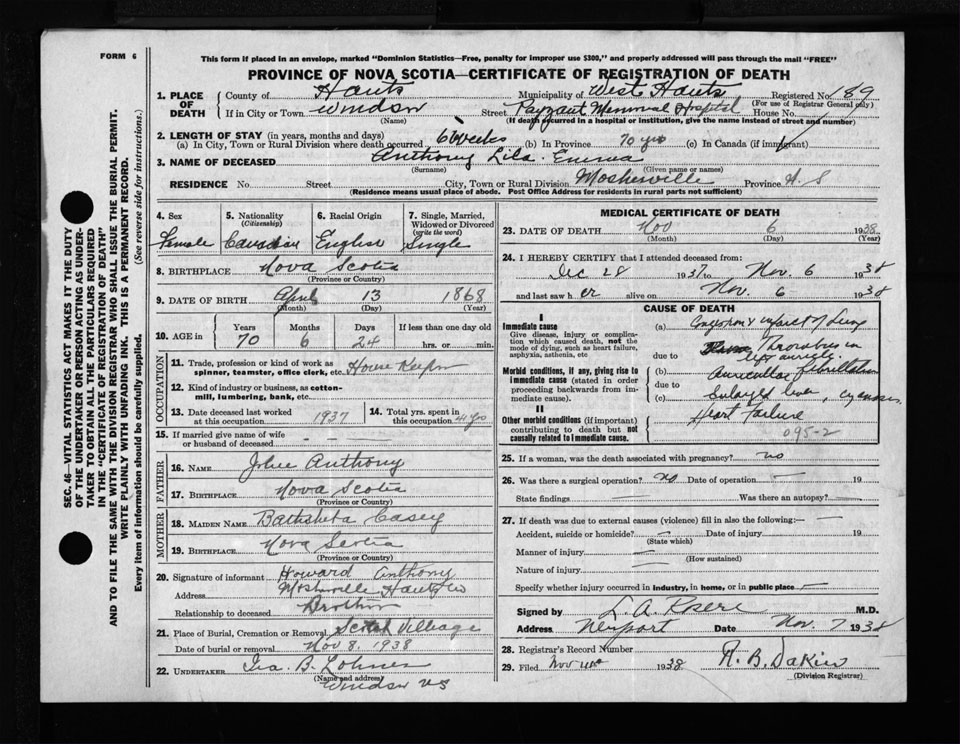 FORM 6
This form if placed in an envelope, marked "Dominion Statistics—Free, penalty for improper use $300," and properly addressed will pass through the mail "FREE"
PROVINCE OF NOVA SCOTIA—CERTIFICATE OF REGISTRATION OF DEATH
SEC. 46—VITAL STATISTICS ACT MAKES IT THE DUTY
OF THE UNDERTAKER OR PERSON ACTING AS UNDER-
TAKER TO OBTAIN ALL THE PARTICULARS REQUIRED
IN THE "CERTIFICATE OF REGISTRATION OF DEATH"
AND TO FILE THE SAME WITH THE DIVISION REGISTRAR WHO SHALL ISSUE THE BURIAL PERMIT.
WRITE PLAINLY WITH UNFADING INK. THIS IS A PERMANENT RECORD.
Every item of information should be carefully supplied. (See reverse side for instructions.)
1. PLACE OF DEATH
County of Hants Municipality of West Hants Registered No. 189
(For use of Registrar General only)
If in City or Town Windsor Street Payzant Memorial Hospital House No.
(Name) (If death occurred in a hospital or institution, give the name instead of street and number)
2. LENGTH OF STAY (in years, months and days)
(a) In City, Town or Rural Division where death occurred 6 Weeks (b) In Province 70 yrs (c) In Canada (if immigrant)
3. NAME OF DECEASED Anthony Lila Emma
(Surname) (Given name or names)
RESIDENCE No. Street City, Town or Rural Division Mosherville Province N.S
(Residence means usual place of abode. Post Office Address for residents in rural parts not sufficient)
4. Sex 5. Nationality (Citizenship) 6. Racial Origin 7. Single, Married, Widowed or Divorced (write the word)
Female Canadian English Single
8. BIRTHPLACE Nova Scotia
(Province or Country)
9. DATE OF BIRTH April 13 1868
(Month) (Day) (Year)
10. AGE in Years Months Days If less than one day old
70 6 24 hrs. or min.
OCCUPATION
11. Trade, profession or kind of work as spinner, teamster, office clerk, etc. House Keeper
12. Kind of industry or business, as cotton-mill, lumbering, bank, etc.
13. Date deceased last worked at this occupation 1937 14. Total yrs. spent in this occupation
15. If married give name of wife or husband of deceased
FATHER
16. NAME John Anthony
17. BIRTHPLACE Nova Scotia
(Province or Country)
MOTHER
18. MAIDEN NAME Bathsheba Casey
19. BIRTHPLACE Nova Scotia
(Province or Country)
20. Signature of informant Howard Anthony
Address Mosherville Hants Co
Relationship to deceased Brother
21. Place of Burial, Cremation or Removal Scotch Village
Date of burial or removal Nov 8, 1938
22. UNDERTAKER Ira. B. Lohnes
(Name and address)
Windsor NS
MEDICAL CERTIFICATE OF DEATH
23. DATE OF DEATH Nov 6 1938
(Month) (Day) (Year)
24. I HEREBY CERTIFY that I attended deceased from:
Dec 28 1937 to Nov. 6 1938
and last saw her alive on Nov. 6 1938
CAUSE OF DEATH
I
Immediate cause
Give disease, injury or complication which caused death, not the mode of dying, such as heart failure, asphyxia, asthenia, etc
Morbid conditions, if any, giving rise to immediate cause (stated in order proceeding backwards from immediate cause).
II
Other morbid conditions (if important) contributing to death but not causally related to immediate cause.
(a) infarct of Lung
due to Thrombus in
left auricle
(b) Auricular fibrillation
due to
(c) Enlarged liver, cyanosis
Heart Failure
095-2
25. If a woman, was the death associated with pregnancy? no
26. Was there a surgical operation? no Date of operation 19
State findings Was there an autopsy?
27. If death was due to external causes (violence) fill in also the following:—
Accident, suicide or homicide? Date of injury 19
(State which)
Manner of injury
(How sustained)
Nature of injury
Specify whether injury occurred in industry, in home, or in public place
Signed by M.D.
Address Newport Date Nov. 7 1938
28. Registrar's Record Number
29. Filed 1938 R. B. Dakin
(Division Registrar)